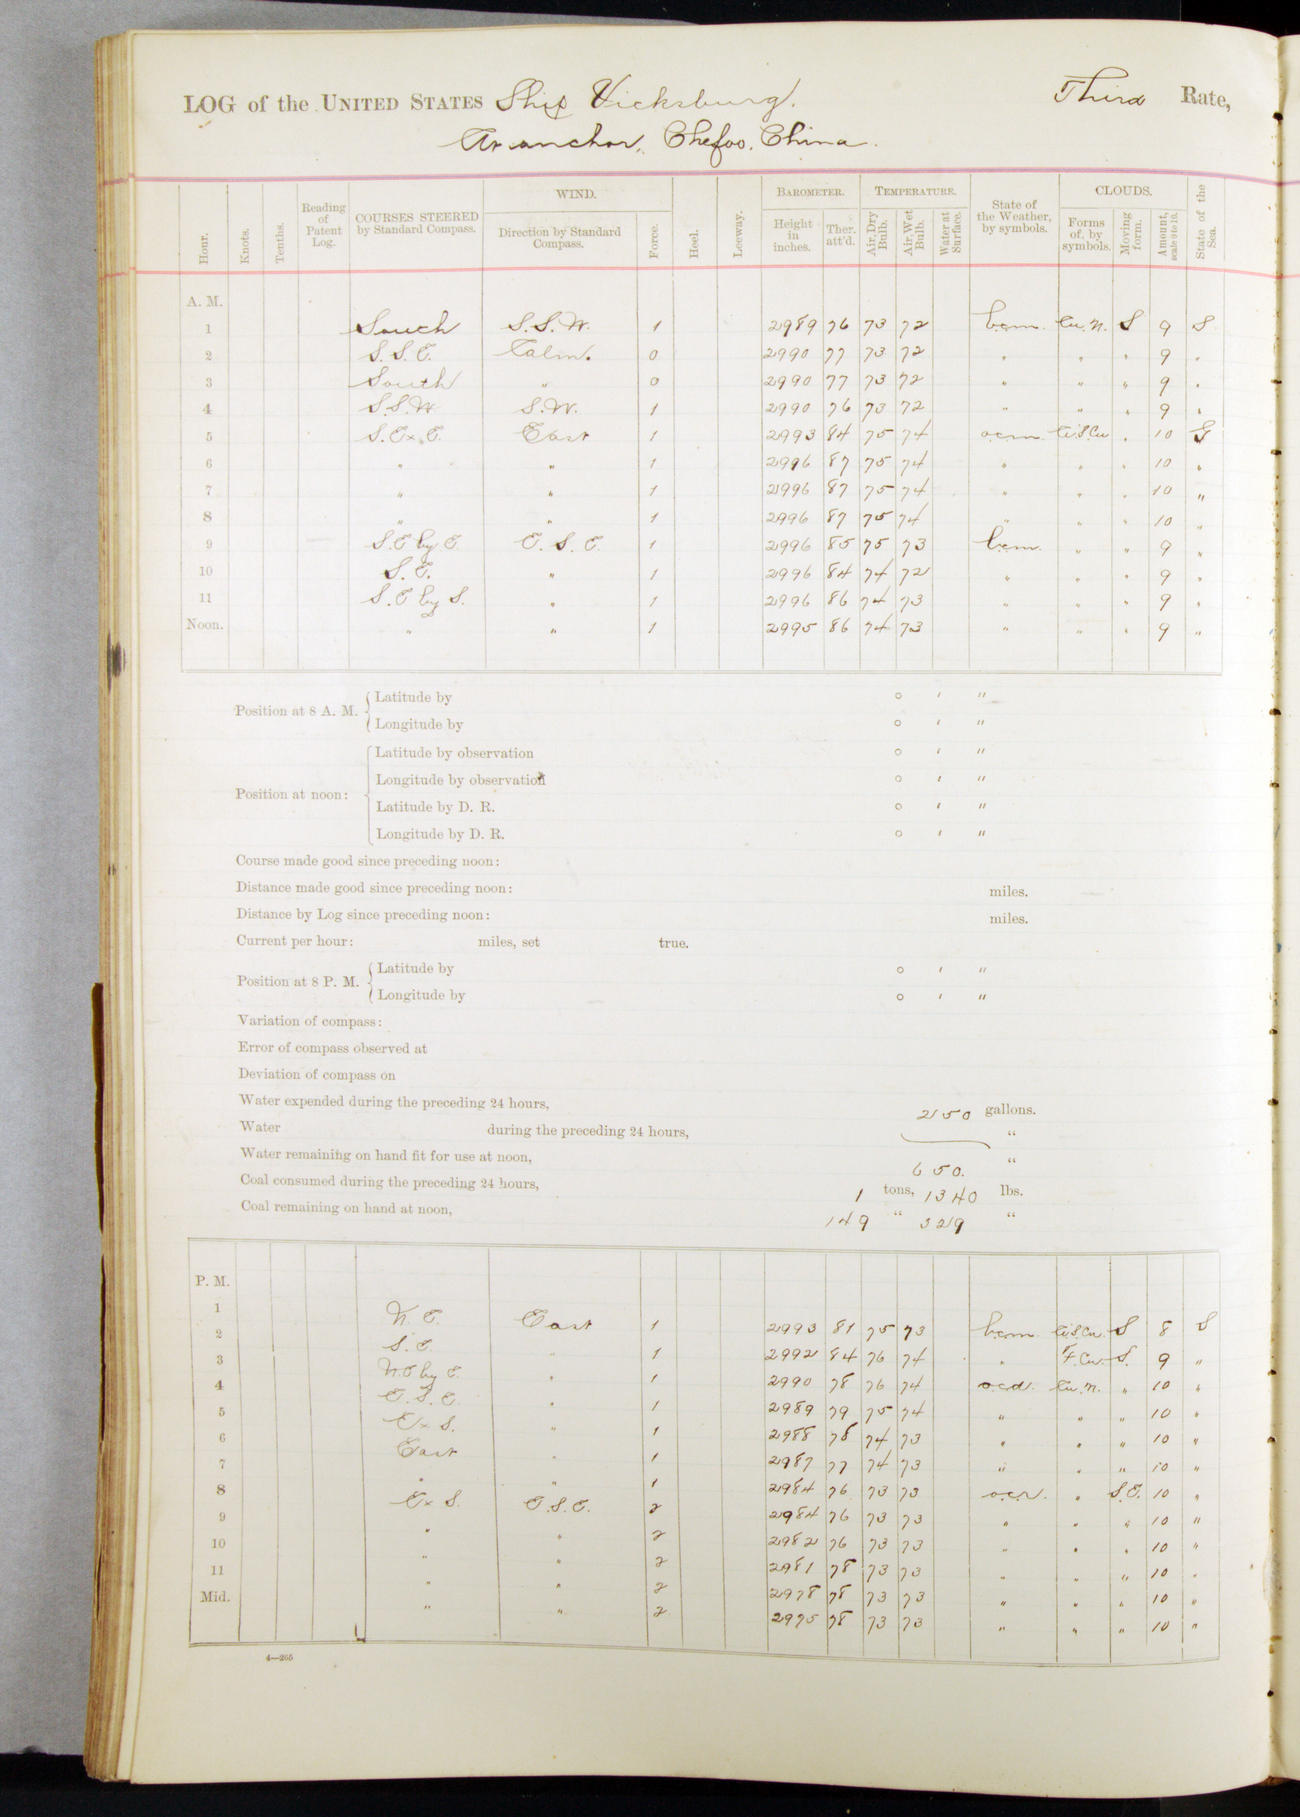 LOG of the UNITED STATES Ship Vicksburg. Third Rate,
At anchor, Chefoo, China.
Hour. Knots. Tenths. Reading of Patent Log. COURSES STEERED by Standard Compass. WIND. Direction by Standard Compass. Force. Heel. Leeway. BAROMETER. Height in inches. Ther. att'd. TEMPERATURE. Air, Dry Bulb. Air, Wet Bulb. Water at Surface. State of the Weather, by symbols. CLOUDS. Forms of, by symbols. Moving form. Amount, scale 0 to 10. State of the Sea.
A. M.
1 South S.S.W. 1 2989 76 73 72 b.c.m. Cu.N. S 9 S
2 S.S.E. Calm. 0 2990 77 73 72 " " " 9 "
3 South " 0 2990 77 73 72 " " " 9 "
4 S.S.W. S.W. 1 2990 76 73 72 " " " 9 "
5 S.ExE. East 1 2993 84 75 74 o.c.m. Ci.S.Cu " 10 S
6 " " 1 2996 87 75 74 " " " 10 "
7 " " 1 2996 87 75 74 " " " 10 "
8 " " 1 2996 87 75 74 " " " 10 "
9 S.E by E. E.S.E. 1 2996 85 75 73 b.c.m. " " 9 "
10 S.E. " 1 2996 84 74 72 " " " 9 "
11 S.E by S. " 1 2996 86 74 73 " " " 9 "
Noon. " " 1 2995 86 74 73 " " " 9 "
Position at 8 A. M. Latitude by ° ' "
Longitude by ° ' "
Position at noon: Latitude by observation ° ' "
Longitude by observation ° ' "
Latitude by D. R. ° ' "
Longitude by D. R. ° ' "
Course made good since preceding noon:
Distance made good since preceding noon: miles.
Distance by Log since preceding noon: miles.
Current per hour: miles, set true.
Position at 8 P. M. Latitude by ° ' "
Longitude by ° ' "
Variation of compass:
Error of compass observed at
Deviation of compass on
Water expended during the preceding 24 hours, 250 gallons.
Water during the preceding 24 hours, "
Water remaining on hand fit for use at noon, 650. "
Coal consumed during the preceding 24 hours, 1 tons, 1340 lbs.
Coal remaining on hand at noon, 149 " 329 "
P. M.
1 N.E. East 1 2993 81 75 73 b.c.m. Ci.S.Cu. S 8 S
2 S.E. " 1 2992 84 76 74 " Cu. S. 9 "
3 N.E by E. " 1 2990 78 76 74 o.c.d. Cu.N. " 10 "
4 E.S.E. " 1 2989 79 75 74 " " " 10 "
5 ExS. " 1 2988 78 74 73 " " " 10 "
6 East " 1 2987 77 74 73 " " " 10 "
7 " " 1 2984 76 73 73 o.c.r. " S.E. 10 "
8 ExS. E.S.E. 2 2984 76 73 73 " " " 10 "
9 " " 2 2982 76 73 73 " " " 10 "
10 " " 2 2981 78 73 73 " " " 10 "
11 " " 2 2978 78 73 73 " " " 10 "
Mid. " " 2 2975 78 73 73 " " " 10 "
4—265